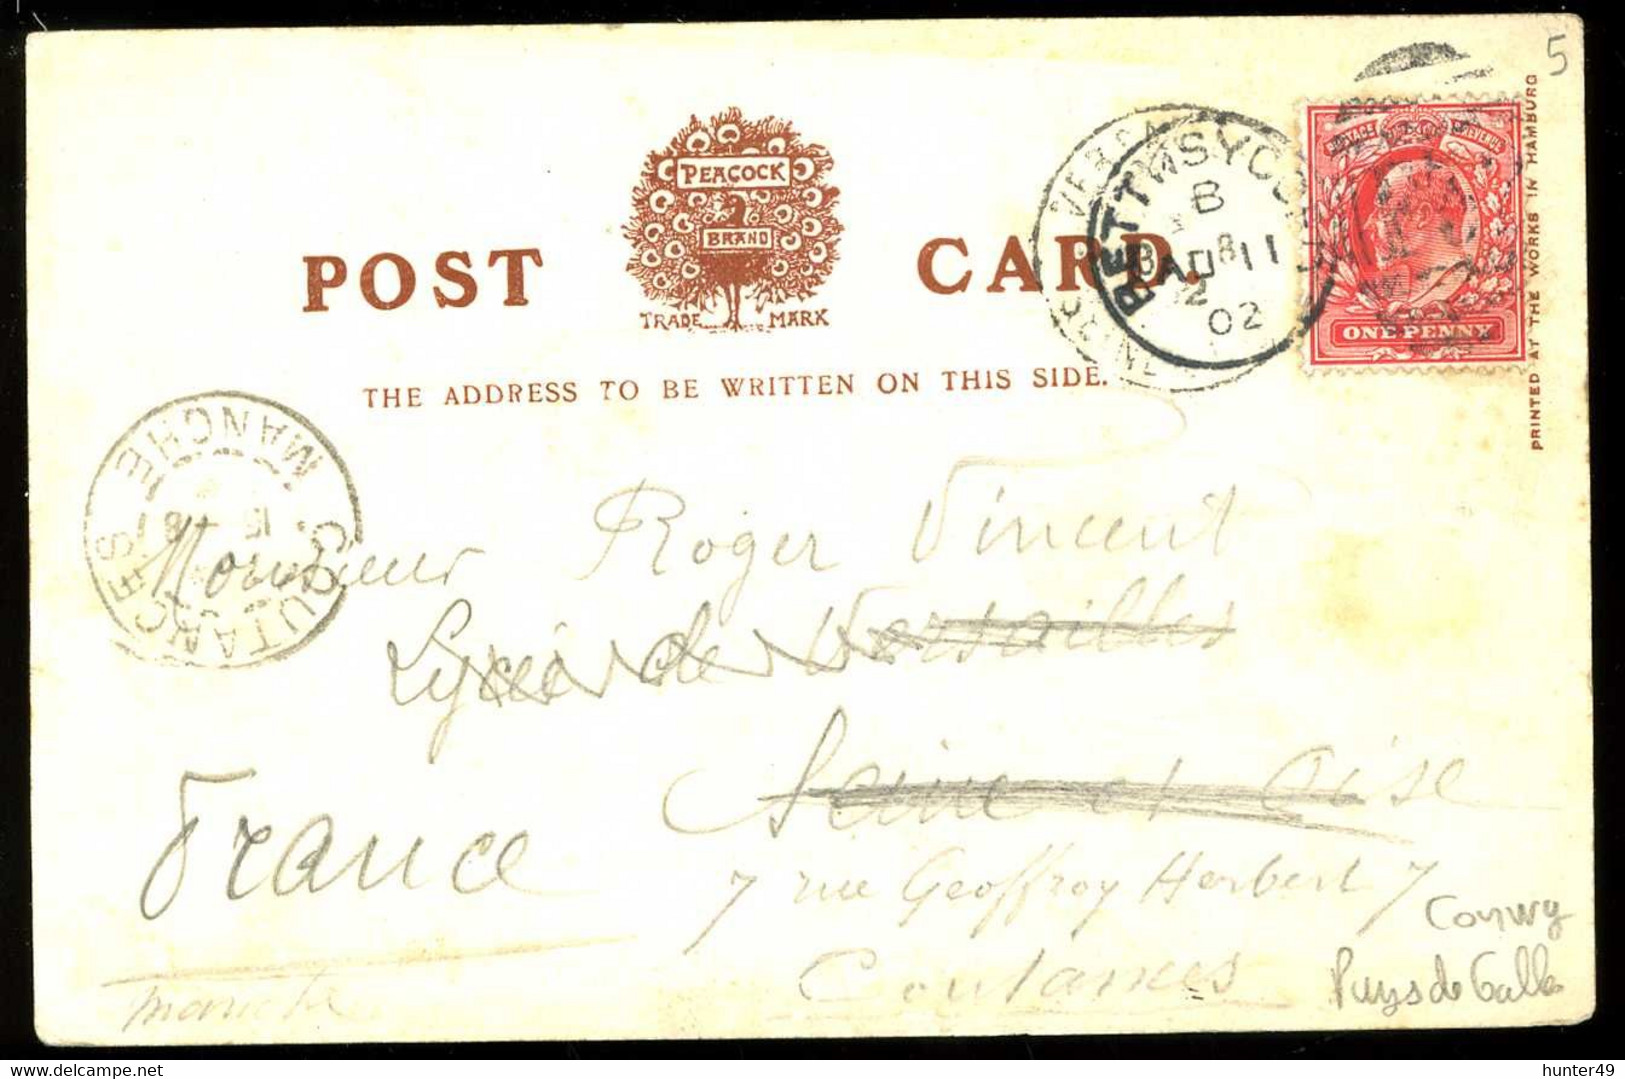 5
PEACOCK
BRAND
TRADE MARK
POST CARD.
THE ADDRESS TO BE WRITTEN ON THIS SIDE.
PRINTED AT THE WORKS IN HAMBURG
BETTWSYCOED
B
AU 11
02
ONE PENNY
COUTANCES
MANCHE
15
Monsieur Roger Vincent
Lycée de Versailles
Seine et Oise
France
7 rue Geoffroy Herbert 7
Coutances
Manche
Conwy
Pays de Galles
hunter49
delcampe.net